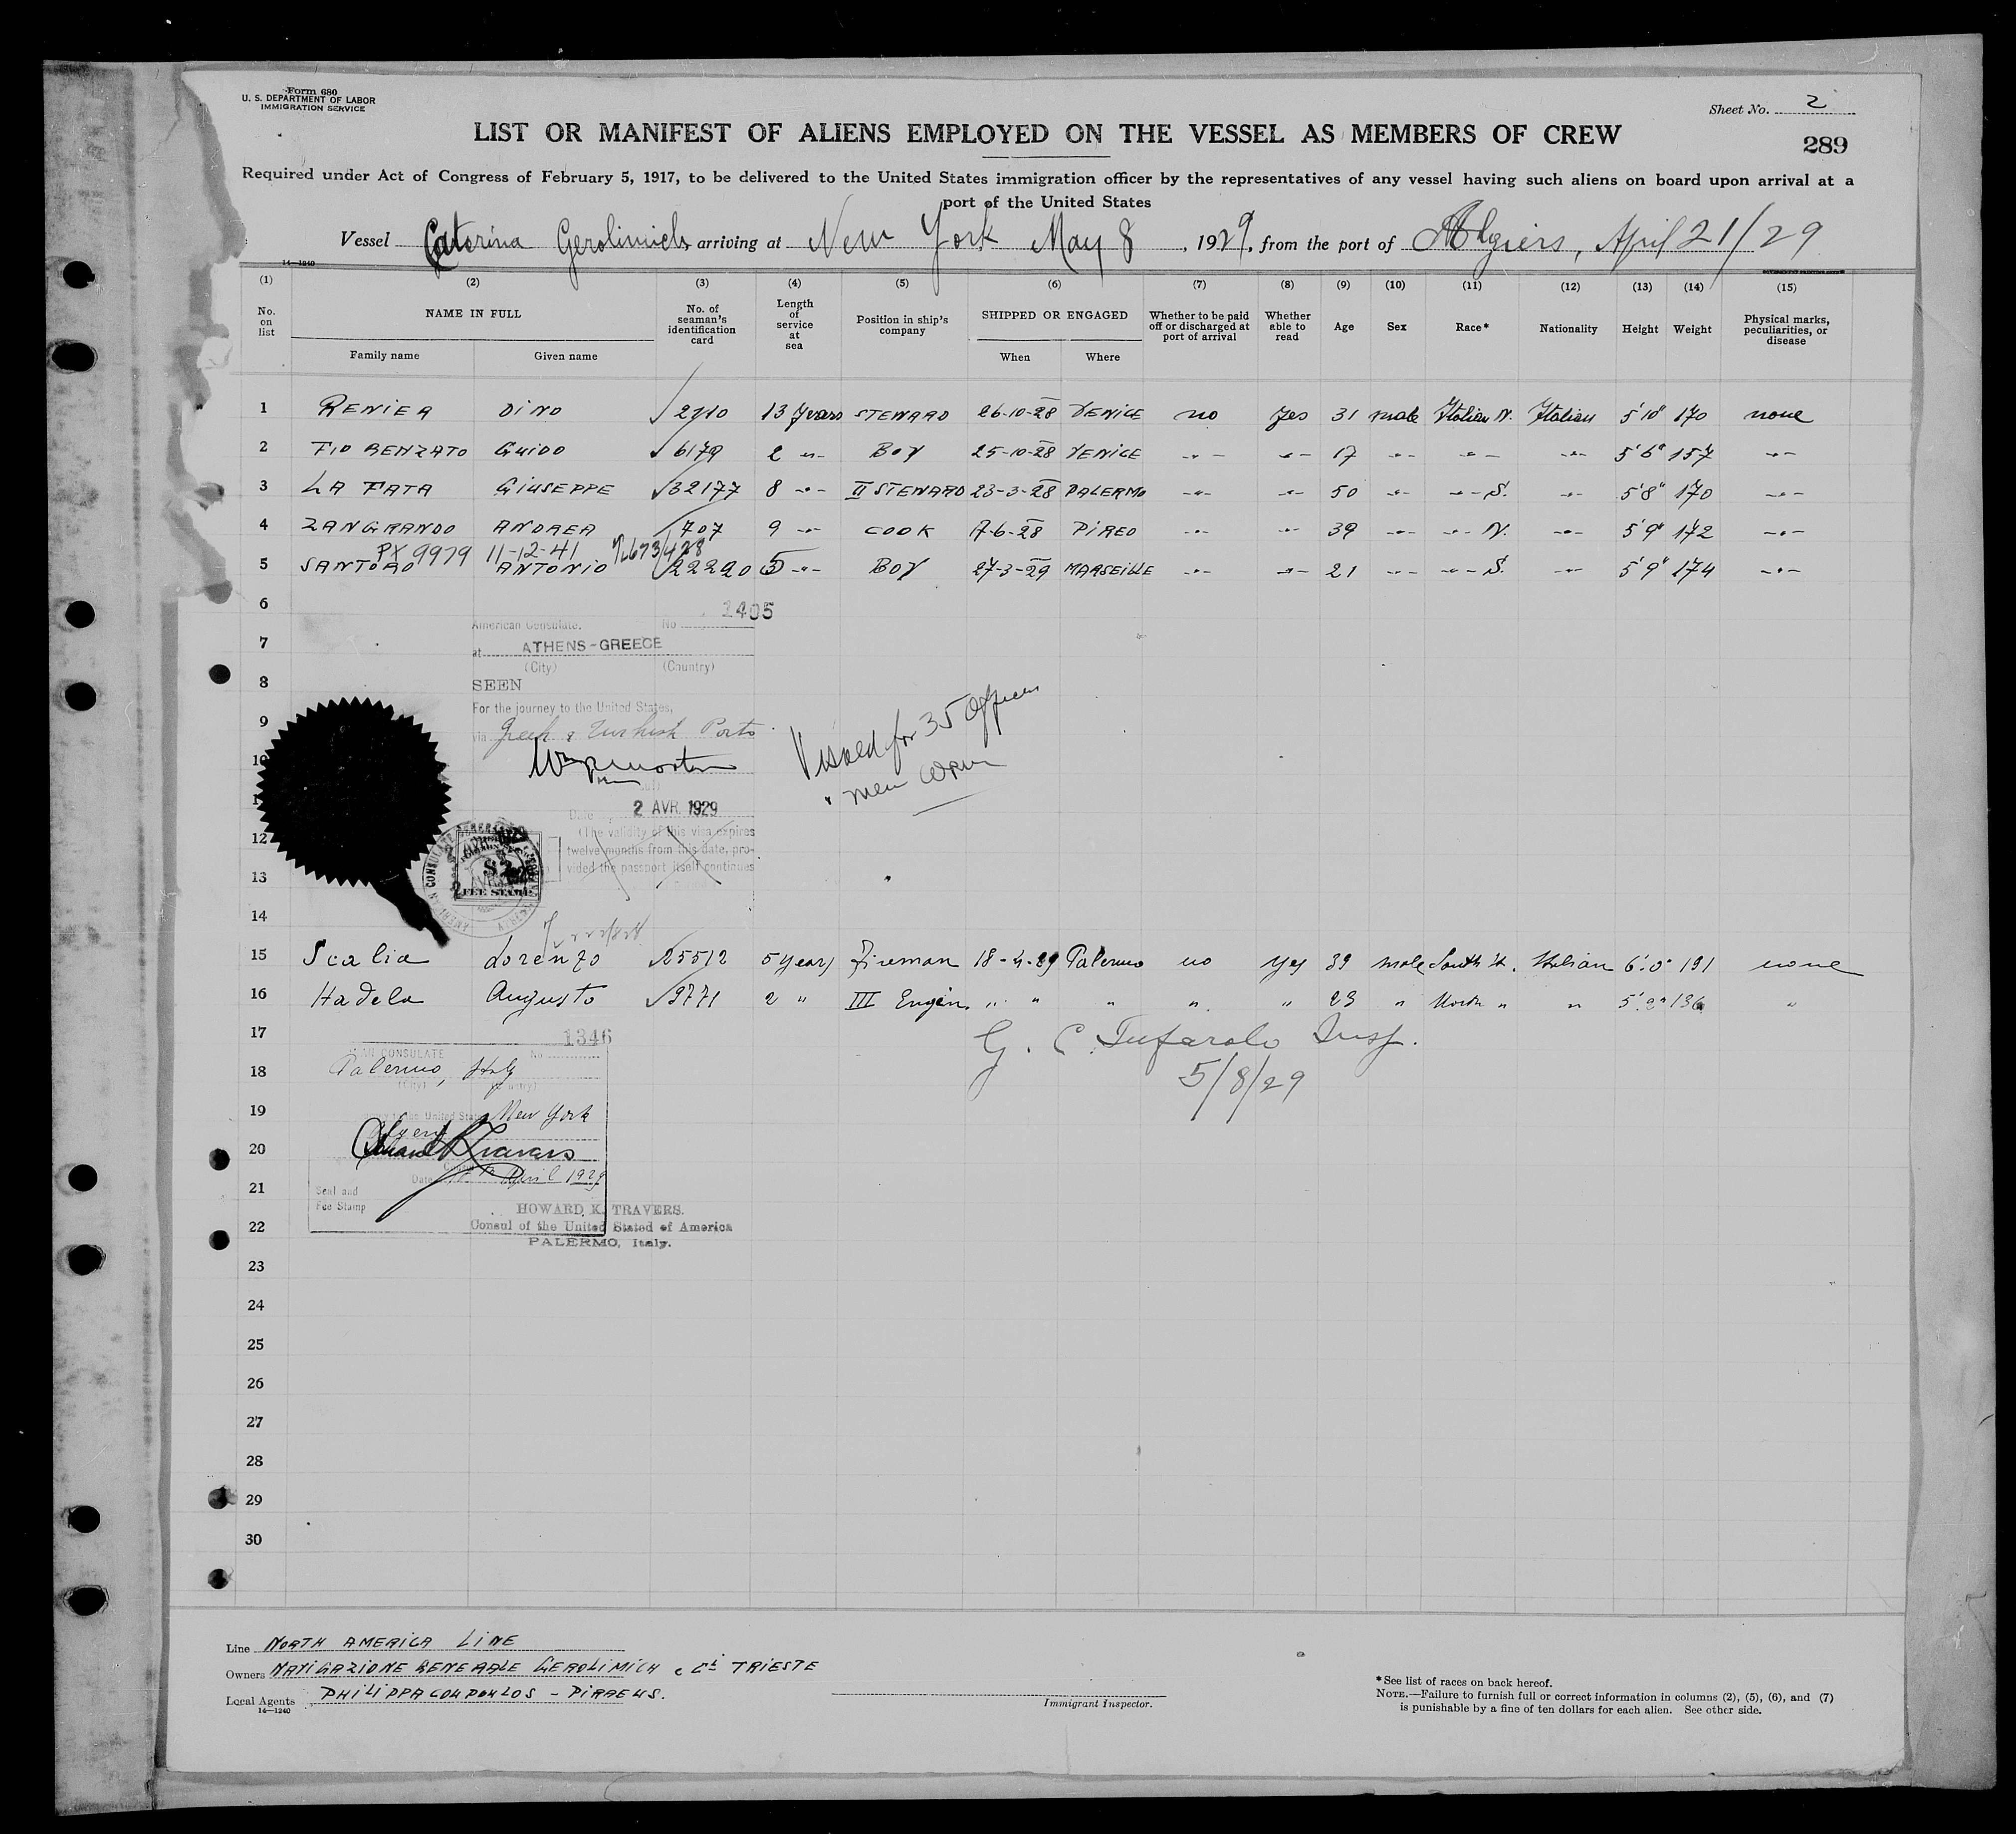 Form 680
U. S. DEPARTMENT OF LABOR
IMMIGRATION SERVICE
Sheet No. 2
LIST OR MANIFEST OF ALIENS EMPLOYED ON THE VESSEL AS MEMBERS OF CREW
289
Required under Act of Congress of February 5, 1917, to be delivered to the United States immigration officer by the representatives of any vessel having such aliens on board upon arrival at a
port of the United States
Vessel Caterina Gerolimich, arriving at New York May 8, 1929, from the port of Algiers, April 21/29
14—1240
(1) (2) (3) (4) (5) (6) (7) (8) (9) (10) (11) (12) (13) (14) (15)
No. on list NAME IN FULL Family name Given name No. of seaman's identification card Length of service at sea Position in ship's company SHIPPED OR ENGAGED When Where Whether to be paid off or discharged at port of arrival Whether able to read Age Sex Race* Nationality Height Weight Physical marks, peculiarities, or disease
1 RENIER DINO √2710 13 years STEWARD 26-10-28 VENICE no yes 31 male Italian N. Italian 5'10" 170 none
2 FIORENZATO GUIDO √6179 2 -"- BOY 25-10-28 VENICE -"- -"- 17 -"- -"- -"- 5'6" 157 -"-
3 LA FATA GIUSEPPE √32177 8 -"- II STEWARD 23-3-28 PALERMO -"- -"- 50 -"- -"- S. -"- 5'8" 170 -"-
4 ZANGRANDO ANDREA √707 9 -"- COOK 7-6-28 PIREO -"- -"- 39 -"- -"- N. -"- 5'9" 172 -"-
PX 9979 11-12-41
5 SANTORO ANTONIO √22220 5 -"- BOY 27-3-29 MARSEILLE -"- -"- 21 -"- -"- S. -"- 5'9" 174 -"-
6
American Consulate. No 2405
7
at ATHENS-GREECE
(City) (Country)
8
SEEN
For the journey to the United States,
9
via Greek & Turkish Ports
Visaed for 35 Officers
10
" men crew
Date 2 AVR. 1929
12
(The validity of this visa expires
twelve months from this date, pro-
vided the passport itself continues
AMERICAN CONSULATE GENERAL
$2
FEE STAMP
13
14
15 Scalia Lorenzo √25512 5 years Fireman 18-4-29 Palermo no yes 39 male South It. Italian 6'0" 191 none
16 Hadela Augusto √9771 2 " III Engin. " " " " " 23 " North " " 5' 136 "
17
1346
G. C. Tufarolo Insp.
CONSULATE No
Palermo, Italy
18
5/8/29
19
United States New York
20
Algiers
Howard K Travers
Date April 1929
21
Seal and
Fee Stamp
HOWARD K. TRAVERS.
22
Consul of the United Stated of America
PALERMO, Italy.
23
24
25
26
27
28
29
30
Line NORTH AMERICA LINE
Owners NAVIGAZIONE GENERALE GEROLIMICH e Ci TRIESTE
Local Agents PHILIPPACOUPOULOS - PIRAEUS.
14—1240
Immigrant Inspector.
*See list of races on back hereof.
NOTE.—Failure to furnish full or correct information in columns (2), (5), (6), and (7)
is punishable by a fine of ten dollars for each alien. See other side.